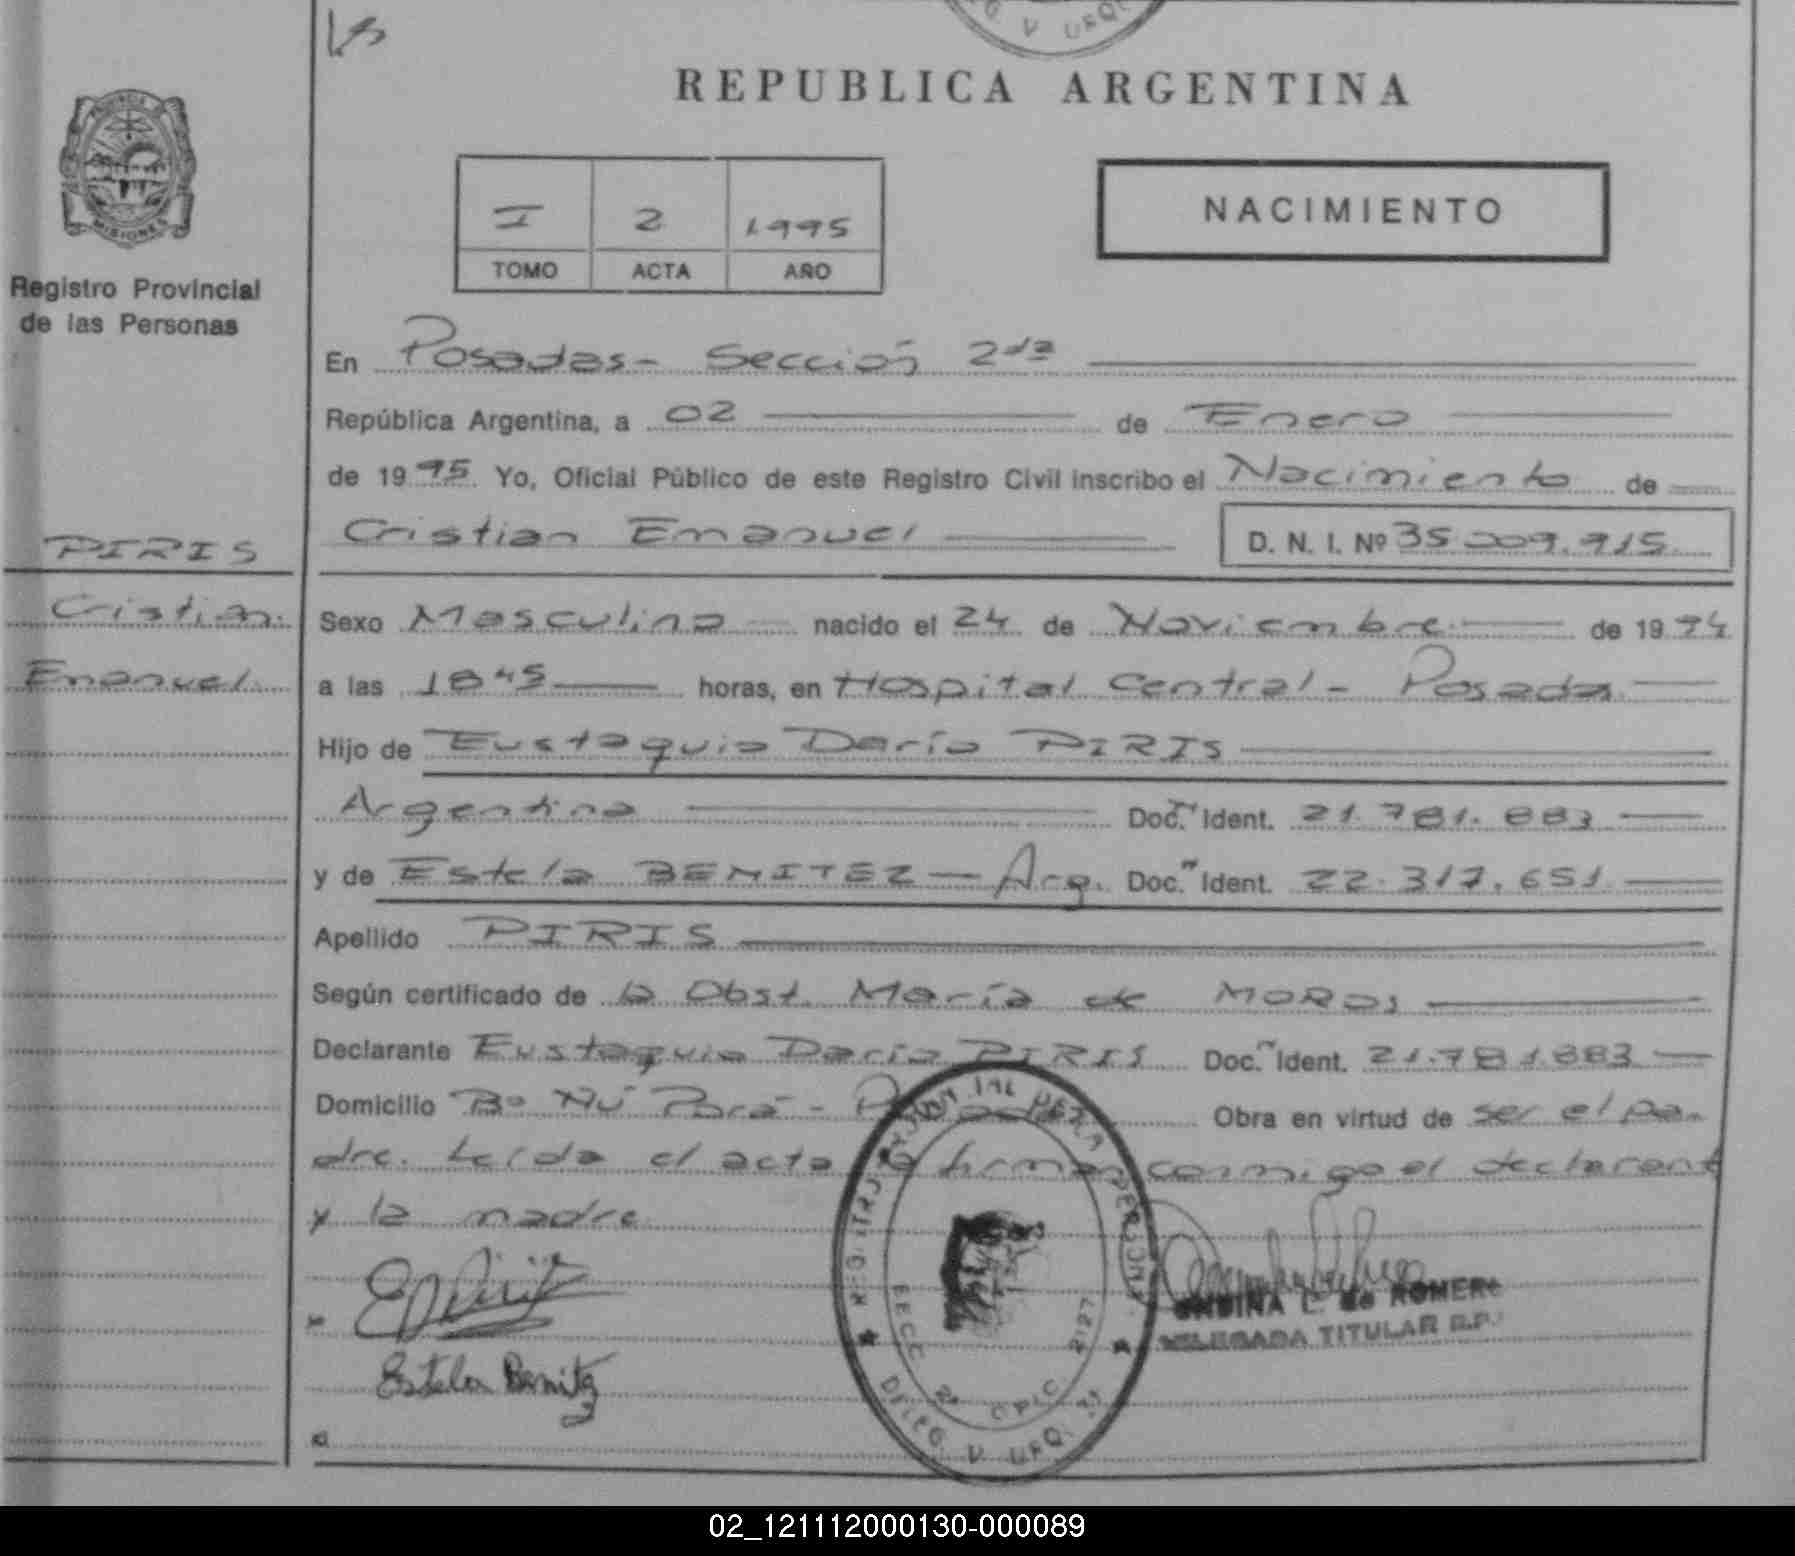 REPUBLICA ARGENTINA
PROVINCIA DE MISIONES
Registro Provincial
de las Personas
I 2 1995
TOMO ACTA AÑO
NACIMIENTO
En Posadas - Sección 2da
República Argentina, a 02 de Enero
de 1995. Yo, Oficial Público de este Registro Civil inscribo el Nacimiento de
Cristian Emanuel D. N. I. Nº 35.009.915
PIRIS
Cristian
Emanuel
Sexo Masculino nacido el 24 de Noviembre de 1994
a las 18 45 horas, en Hospital Central - Posadas
Hijo de Eustaquio Darío PIRIS
Argentino Doc. Ident. 21.781.883
y de Estela BENITEZ - Arg. Doc. Ident. 22.317.651
Apellido PIRIS
Según certificado de la Obst. María de
Declarante Eustaquio Darío PIRIS Doc. Ident. 21.781.883
Domicilio Bº Ñú Porá - Posadas Obra en virtud de ser el pa-
dre. Leída el acta la firman conmigo el declarante
y la madre
Estela Benitez
L. de ROMERO
DELEGADA TITULAR R.P.
DELEG. V. URQ.
02_121112000130-000089